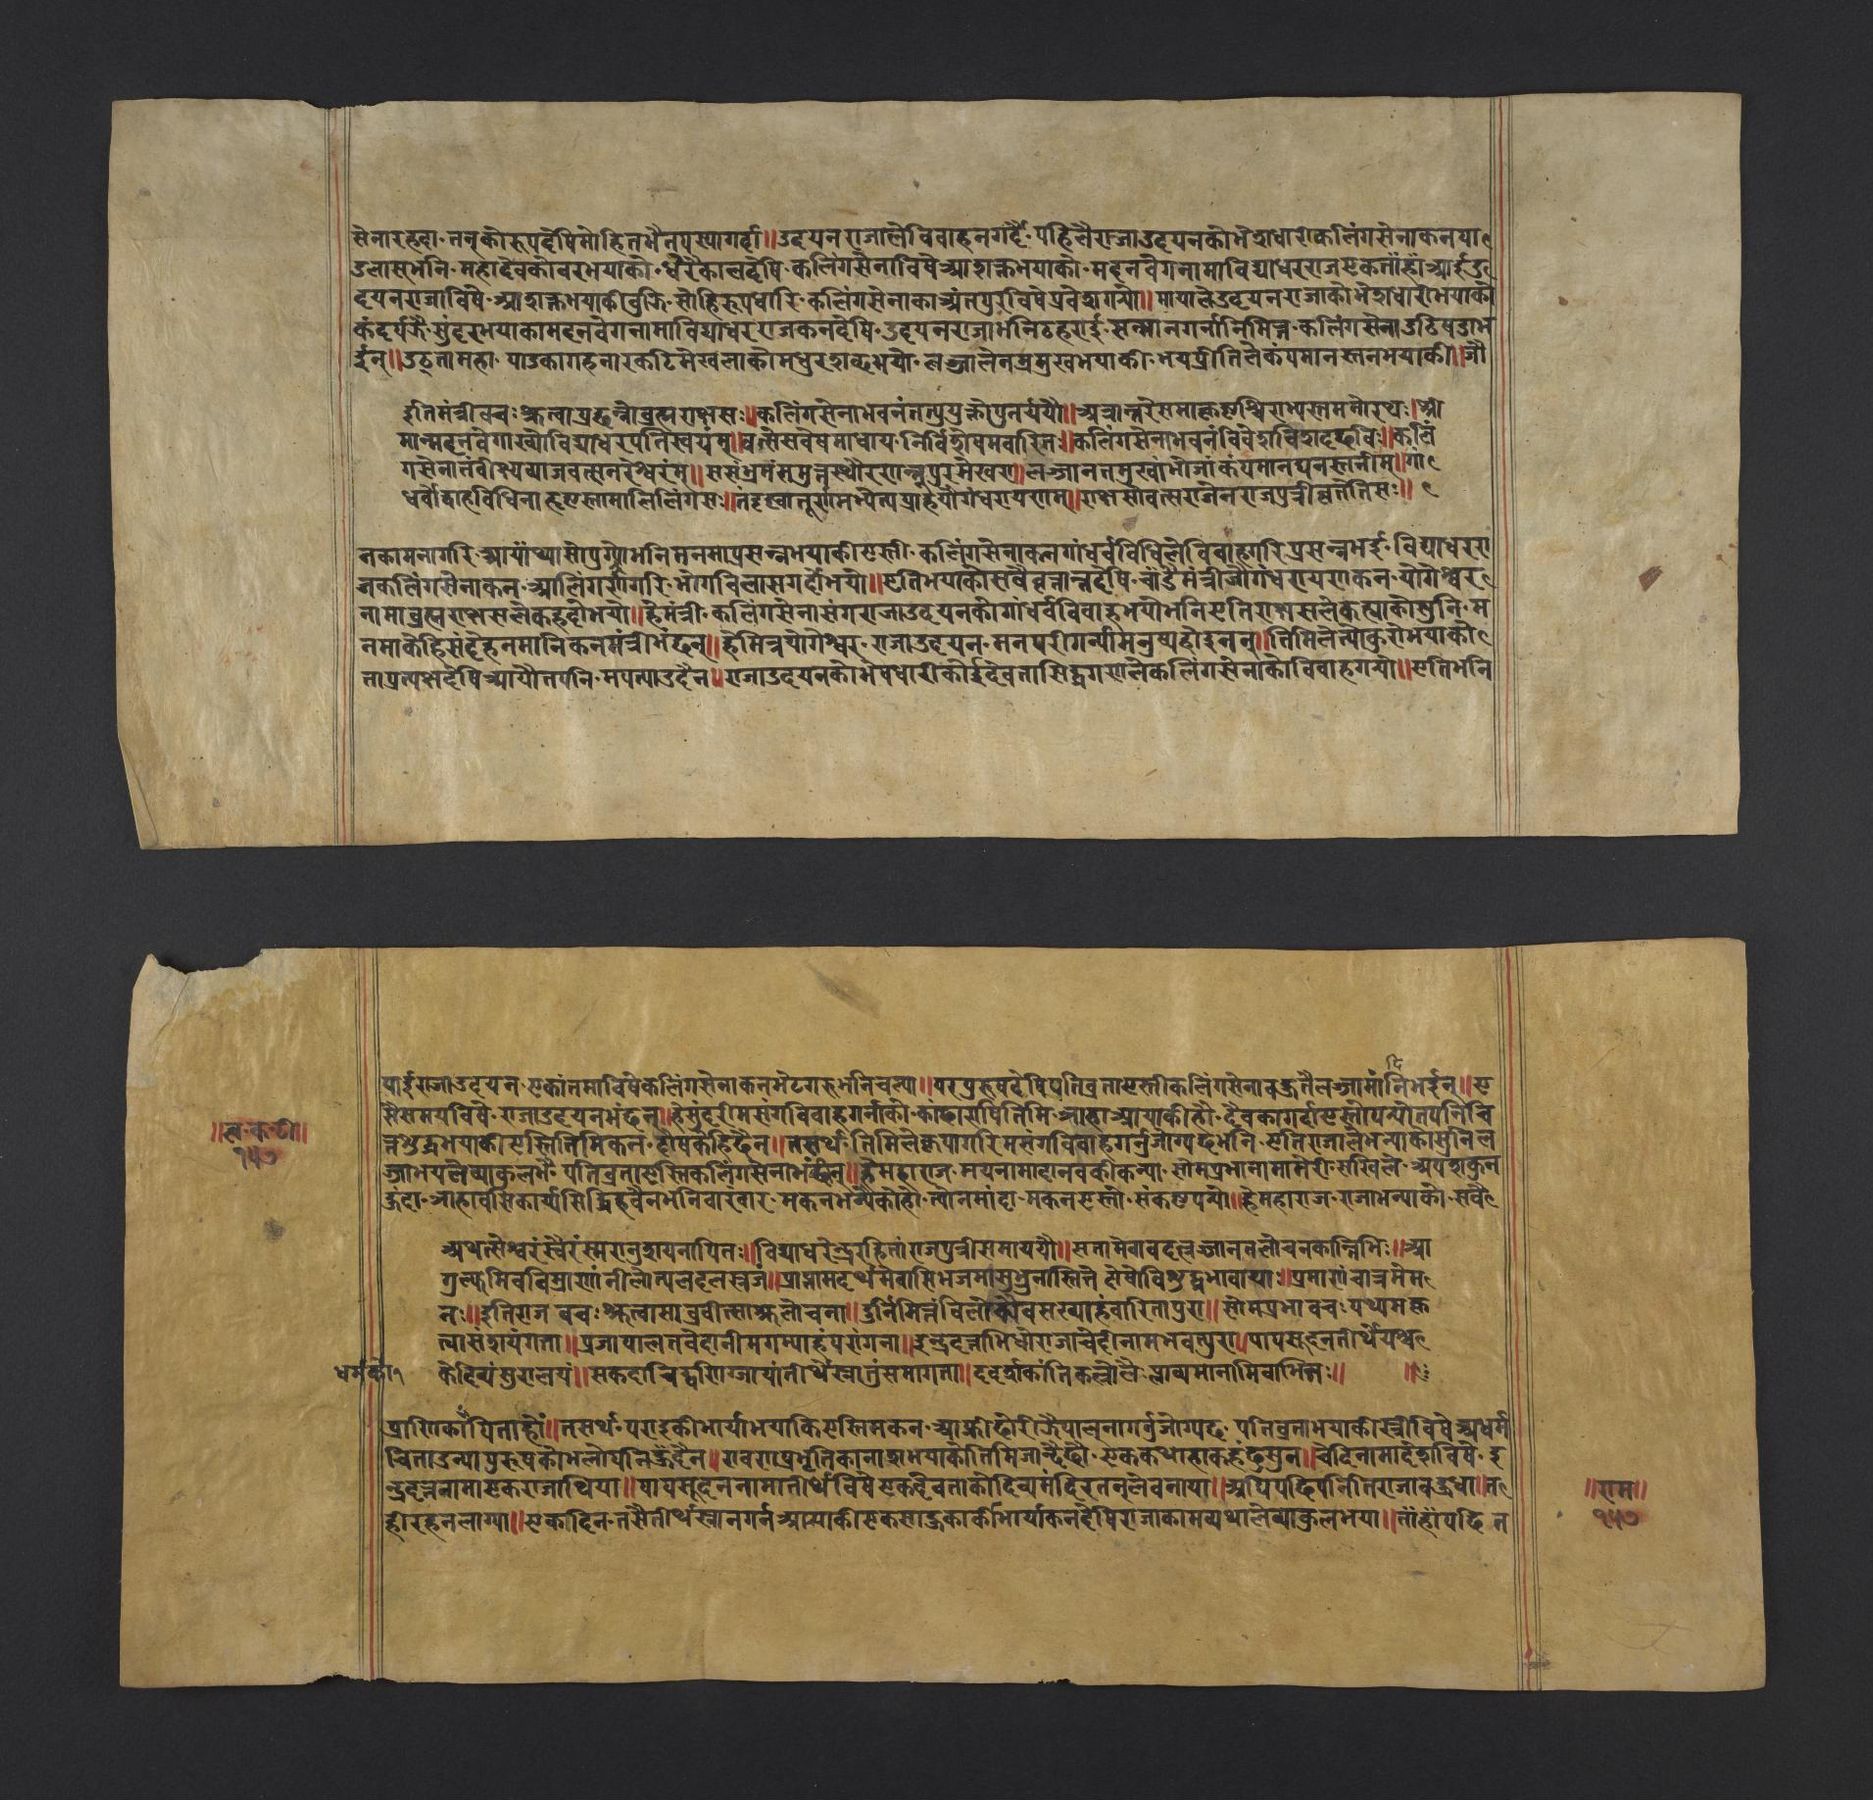 सेनारहदा· तनुकोरूपदेषिमोहितभैतपस्यागर्दा॥उदयनराजालेविवाहनगर्दै· पहिलैराजाउदयनकोभेशधारीकलिंगसेनाकनपा
उलासभनि· महादेवकोवरभयाको· धेरैकालदेषि· कलिंगसेनाविषेआशक्तभयाको· मदनवेगनामाविद्याधरराजएकताँहाँआईउ
दयनराजाविषे· आशक्तभयाकीबुझि· सोहिरूपधारि· कलिंगसेनाकाअंतपुरविषेप्रवेशगर्‍यो॥मायालेउदयनराजाकोभेशधारीभयाको
कंदर्पझैसुंदरभयाकामदनवेगनामाविद्याधरराजकनदेषि· उदयनराजाभनिठहराई· सन्मानगर्नानिमित्त· कलिंगसेनाउठिषडाभ
ईन्॥उठ्तामहा· पाउकागहनारकटिमेखलाकोमधुरशब्दभयो· लज्जालेनम्रमुखभयाकी· भयप्रीतिलेकंपमानस्तनभयाकी॥गौ
इतिमंत्रीवचः श्रुत्वाप्रछन्नोब्रह्मराक्षसः॥कलिंगसेनाभवनंतत्प्रयुक्तोपुनर्ययौ॥अत्रान्तरेसमाकृष्टश्चिराभ्यस्तमनोरथः॥श्री
मान्मदनवेगाख्योविद्याधरपतिस्वयंम्॥वत्सेसवेषमाधाय· निर्विशेषमवारितः॥कलिंगसेनाभवनंविवेशविशदछविः॥कलिं
गसेनातंवीक्ष्यव्याजवत्सनरेश्वरंम्॥ससंभ्रमंसमुत्तस्थौरणन्नूपुरमेखला॥लज्जानतमुखांभोजाकंपमानघनस्तनीम्॥गां
धर्वोद्वाहविधिनाहृष्टस्तामालिलिंगसः॥तंदृष्ट्वातूर्णमभ्येत्यप्राहयौगंधरायणम्॥राक्षसोवत्सराजेनराजपुत्रीवृतेतिसः॥
नकामनागरि· आयाँथ्यासोपुग्योभनिमनमाप्रसन्नभयाकीएस्ती· कलिंगसेनाकनगांधर्वविधिलेविवाहगरिप्रसन्नभई· विद्याधररा
जकलिंगसेनाकन· आलिंगर्णागरि· भोगविलासगर्दोभयो॥एतिभयाकोसवैवृत्तान्तदेषि· चाँडैमंत्रीजौगंधरायणकन· योगेश्वर
नामाब्रह्मराक्षसलेकहदोभयो॥हेमंत्री· कलिंगसेनासंगराजाउदयनकोगांधर्वविवाहभयोभनिएतिराक्षसलेकह्याकोशुनि· म
नमाकेहिसंदेहनमानिकनमंत्रीभंछन्॥हेमित्रयोगेश्वर· राजाउदयन· मनपरीगन्यीमनुष्यहोइनन्॥तिमिलेत्योकुरोभयाको
ताप्रत्यक्षदेषिआयौतपनि· मपत्याउदैन॥राजाउदयनकोभेषधारीकोईदेवतासिद्धगणलेकलिंगसेनाकोविवाहगर्‍यो॥एतिभनि
पाईराजाउदयन· एकांतमाविषेकलिंगसेनाकनभेटगरुभनिचल्या॥परपुरुषदेषिपतिव्रताएस्तीकलिंगसेनावहुतैलज्जामाँनिभईन्॥ए
सैसमयविषे· राजाउदयनभंछन्॥हेसुंदरीमसंगविवाहगर्नाको· कांक्षाराषितिमि· ञाहाआयाकीहौ· दैवकागर्दाएस्तोपर्‍योतपनिचि
त्तशुद्धभयाकीएस्तितिमिकन· दोषकेहिछैन॥तसर्थ· तिमिलेकृपागरिमसंगविवाहगर्नुजोग्यछभनि· एतिराजालेभन्याकोसुनिल
ज्जाभयलेव्याकुलभै· पतिव्रताएस्तिकलिंगसेनाभंछन्॥हेमहाराज· मयनामादानवकीकन्या· सोमप्रभानामामेरी· सखिले· अपशकुन
हुंदा· ञाहावसिकार्य्यसिद्धिहुवैनभनिवारंवार· मकनभन्यैकोहो· त्योनमांदा· मकनएस्तो· संकष्टपर्‍यो॥हेमहाराज· राजाभन्याको· सवै
॥व· क· टी॥
१५७
अथवत्सेश्वरंस्वैरंस्मरानुशयतापितः॥विद्याधरेन्द्ररहितांराजपुत्रीसमाययौ॥सतामेवावदल्लज्जानतलोचनकान्तिभिः॥आ
गुल्फमिवबिभ्राणांनीलोत्पलदलस्त्रजं॥प्राप्तामदर्थमेवासिभजमांसुभ्रुनास्तिते दोषोविशुद्धभावायाः॥प्रमाणंचात्रमेम
नः॥इतिराज वचः श्रुत्वासाब्रवीत्सास्रुलोचना॥दुर्निमित्तंविलोक्यैवसख्याहंवारितापुरा॥सोमप्रभा वचः पथ्यमकृ
त्वासंशयंगता॥प्रजापालतवेदानीमगम्याहंपरांगना॥इन्द्रदत्ताभिधोराजाचेदीनामभवत्पुरा॥पापसूदनतीर्थेयश्च
क्रेदिव्यंशुरालयं॥सकदाचिद्वणिग्जायांतीर्थेस्नातुंसमागता॥ददर्शकांतिकल्लोलैः प्लाव्यमानामिवाभितः॥ ॥
प्राणिकापिताहौ॥तसर्थ· पराइकीभार्याभयाकिएस्तिमकन· आफ्नीछोरीझैपालनागर्नुजोग्यछ· पतिव्रताभयाकीस्त्रीविषेअधर्म
चिताउन्यापुरुषकोभलोपनिहुँदैन॥रावणप्रभृतिकानाशभयाकोतिमिजान्दैछौ· एककथाहाकहंछुसुन॥चेदिनामादेशविषे· इ
न्द्रदत्तनामाएकराजाथिया॥पापसूदननामातीर्थविषेएकदेवताकोदिव्यमंदिरतनुलेवनाया॥अघिपछिपनितिराजावहुधा॥त
हीरहनलाग्या॥एकादिन· तसैतीर्थस्नानगर्नआयाकीएकसाहुकाकीभार्याकनदेषिराजाकामव्यथालेव्याकुलभया॥ताँहाँपछि त
॥राम॥
१५७